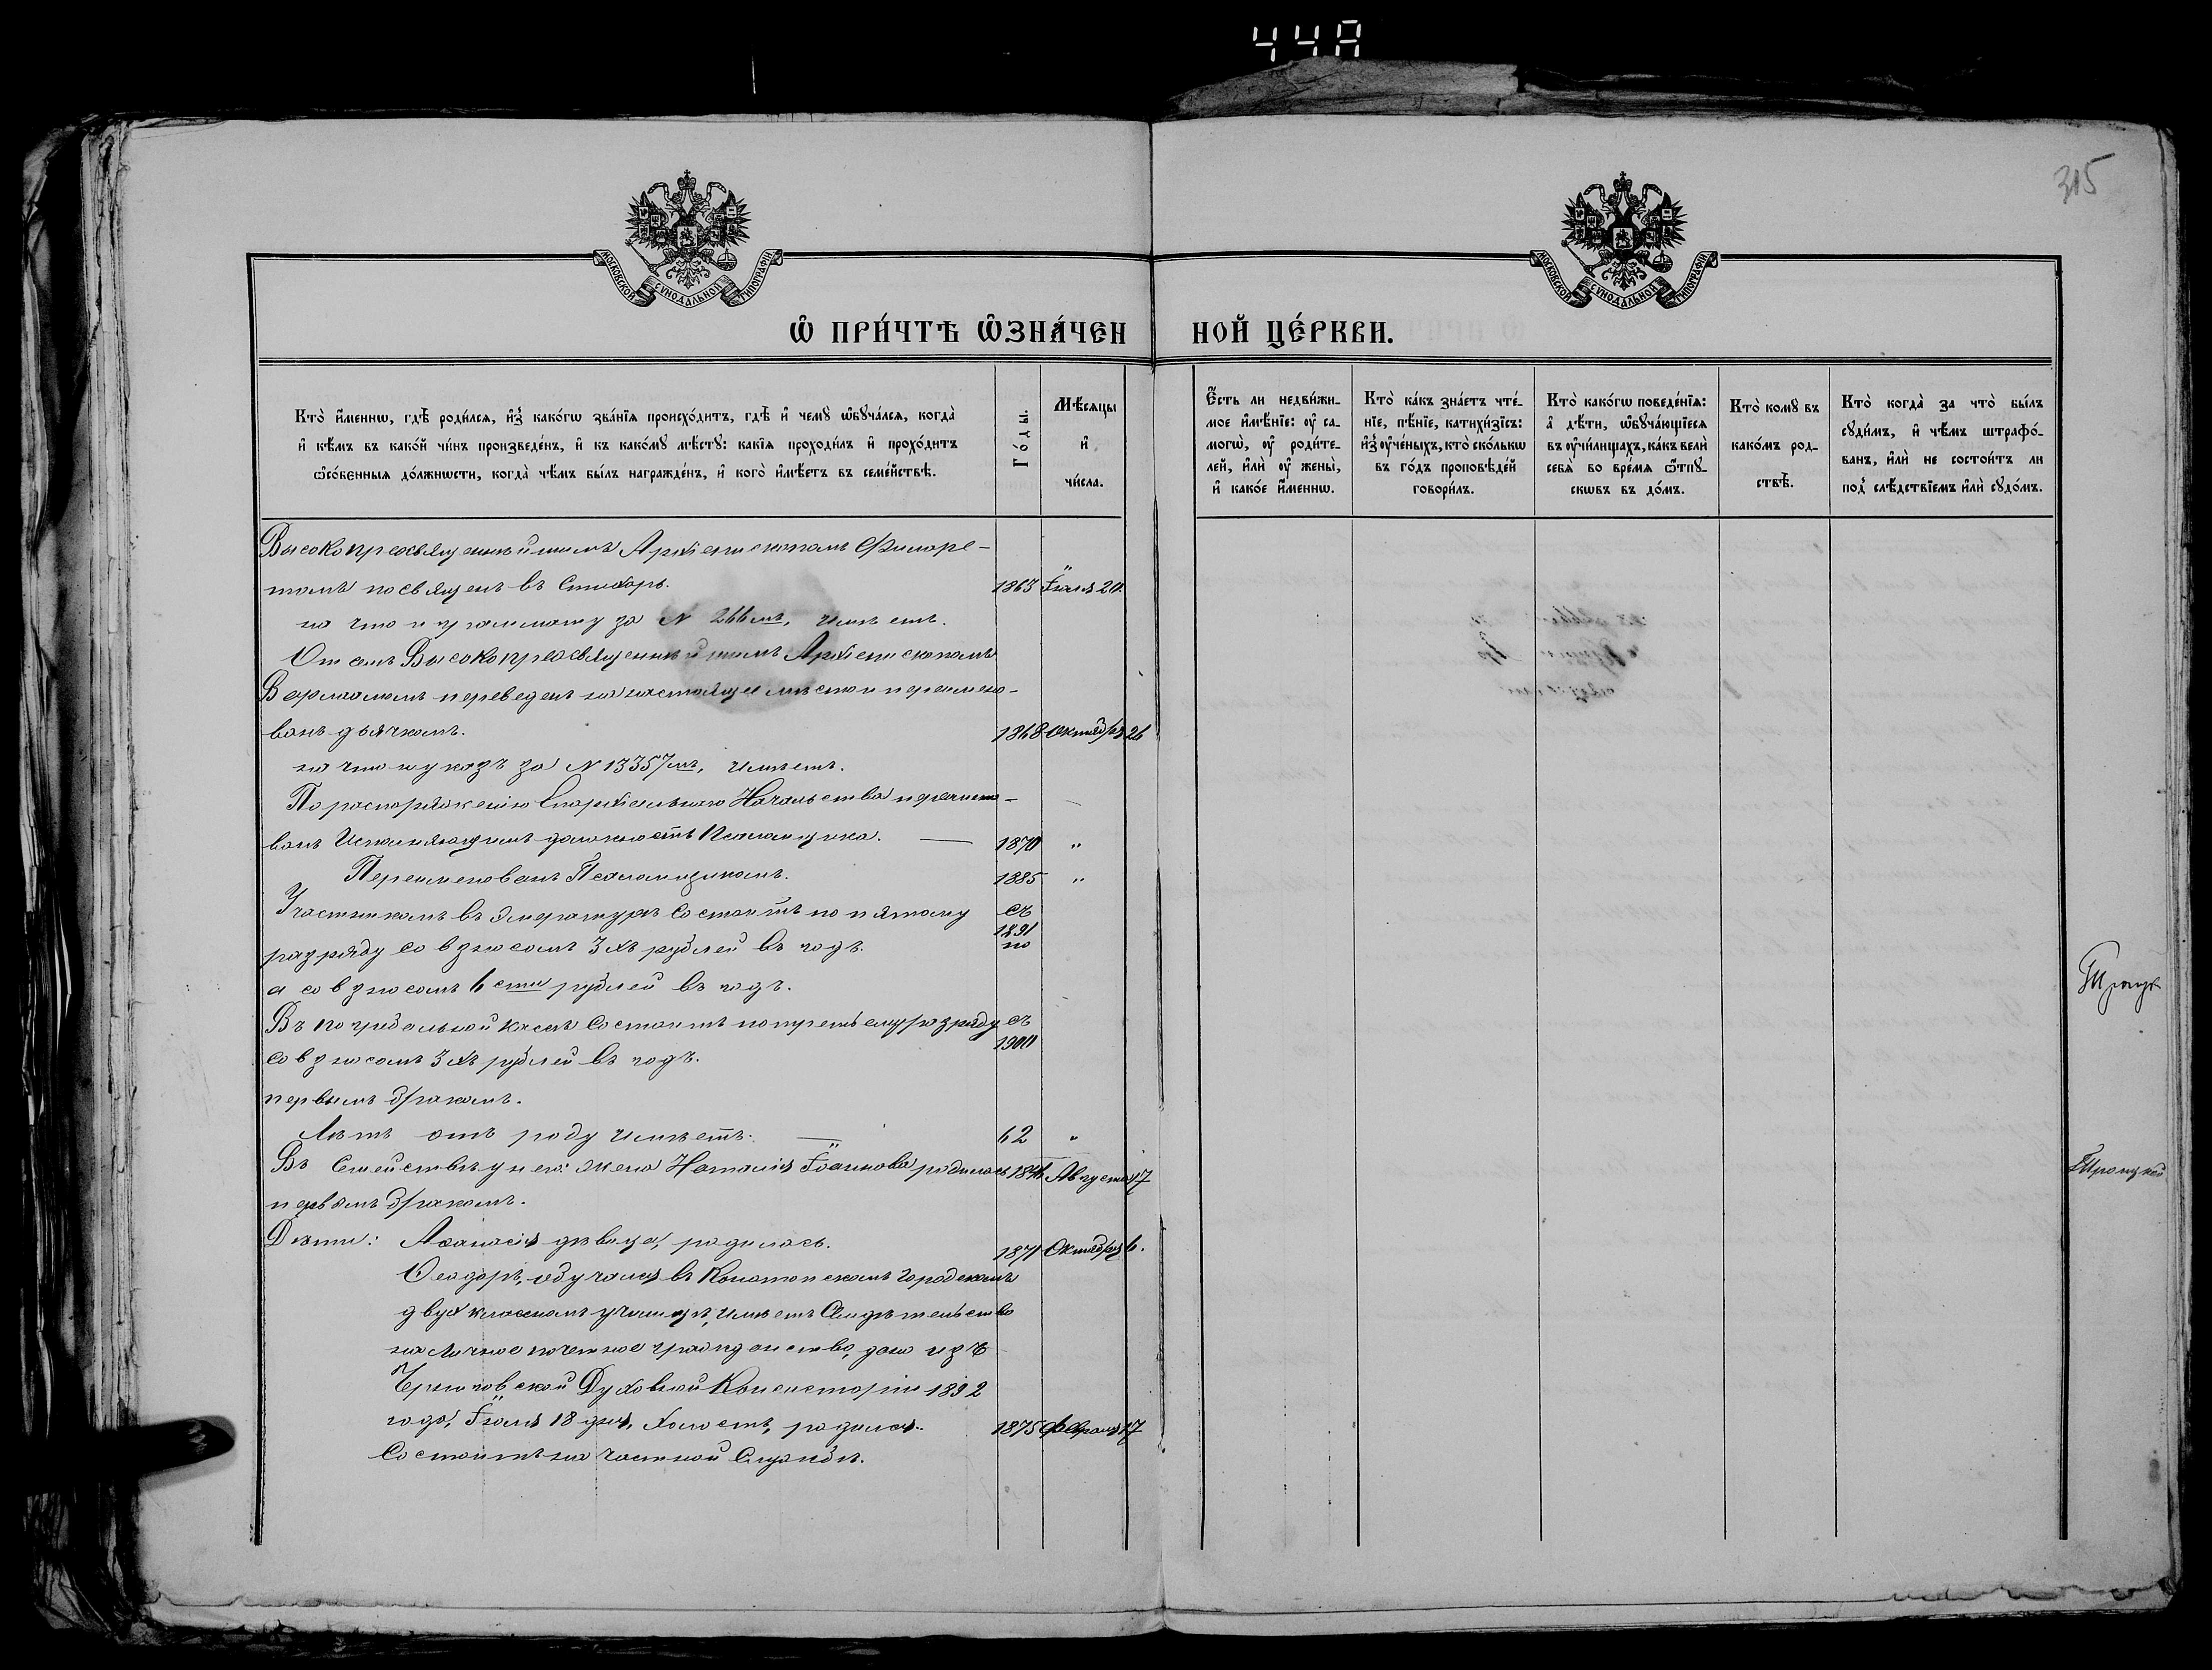 448
315
МОСКОВСКОЙ СѴНОДАЛЬНОЙ ТИПОГРАФІИ
МОСКОВСКОЙ СѴНОДАЛЬНОЙ ТИПОГРАФІИ
Ѡ ПРИ́ЧТѢ ѠЗНА́ЧЕН НОЙ ЦЕ́РКВИ.
Кто̀ и҆́менно, гдѣ̀ роди́лсѧ, и҆з̾ како́гѡ зва́нїѧ происхо́дитъ, гдѣ̀ и҆ чемꙋ̀ ѡ҆бꙋча́лсѧ, когда̀
и҆ кѣ́мъ въ како́й чи́нъ произведе́нъ, и҆ къ како́мꙋ мѣ́стꙋ: какі̑ѧ проходи́лъ и҆ прохо́дитъ
ѡ҆со́бенныѧ до́лжнѡсти, когда̀ чѣ́мъ бы́лъ награжде́нъ, и҆ кого̀ и҆мѣ́етъ въ семе́йствѣ.
Го́ды.
Мѣ́сѧцы
и҆
чи́сла.
Є҆́сть ли недви́жи-
мое и҆мѣ́нїе: оу҆ са-
могѡ̀, оу҆ роди́те-
лей, и҆лѝ оу҆ жены̀,
и҆ како́е и҆́меннѡ.
Кто̀ ка́къ зна́етъ чте́-
нїе, пѣ́нїе, катихи́зїсъ:
и҆з̾ оу҆че́ныхъ, кто̀ ско́лькѡ
въ го́дъ проповѣ́дей
говори́лъ.
Кто̀ како́гѡ поведе́нїѧ:
а҆ дѣ́ти, ѡ҆бꙋча́ющїесѧ
въ оу҆чи́лищахъ, ка́къ велѝ
себѧ̀ во вре́мѧ ѿпꙋ-
скѡвъ въ до́мъ.
Кто̀ комꙋ̀ въ
како́мъ род-
ствѣ̀.
Кто̀ когда̀ за что̀ бы́лъ
сꙋди́мъ, и҆ чѣ́мъ штрафо́-
ванъ, и҆лѝ не состои́тъ ли
под̾ слѣ́дствїемъ и҆лѝ сꙋдо́мъ.
Высокопреосвященнѣйшимъ Архіепископомъ Филаре-
томъ посвященъ въ Стихарь. 1863 Іюля 20.
на что и грамматту за N 266мъ, имѣетъ.
Онъ самъ Высокопреосвященнѣйшимъ Архіепископомъ
Варлаамомъ переведенъ на настоящее мѣсто и переимено-
ванъ дьячкомъ. 1868 Октября 26
на что и указъ за N 13357мъ, имѣетъ.
По распоряженію Епархіальнаго Начальства переимено-
ванъ Исполняющимъ должность Псаломщика. — 1870 „
Переименованъ Псаломщикомъ. 1885 „
Участникомъ въ эмеритурѣ Состоитъ по пятому съ
1891
разряду со взносомъ 3хъ рублей въ годъ. по
а со взносомъ 6сти рублей въ годъ.
Въ погребальной кассѣ Состоитъ по третьему разряду съ
1900
со взносомъ 3хъ рублей въ годъ.
первымъ бракомъ.
Лѣтъ отъ роду имѣетъ. — 62 „
Въ Семействѣ у него: жена Наталія Іоаннова родилась Августа 17
первымъ бракомъ.
Дѣти: Аѳанасія дѣвица, родилась. 1871 Октября 6.
Ѳеодоръ, обучался въ Конотопскомъ городскомъ
двухклассномъ училищѣ, имѣетъ Свидѣтельство
на личное почетное гражданство, дано изъ
Черниговской Духовной Консисторіи 1892
года, Іюля 18 дня, холостъ, родился. 1875 Февраля 17
Состоитъ на частной Службѣ.